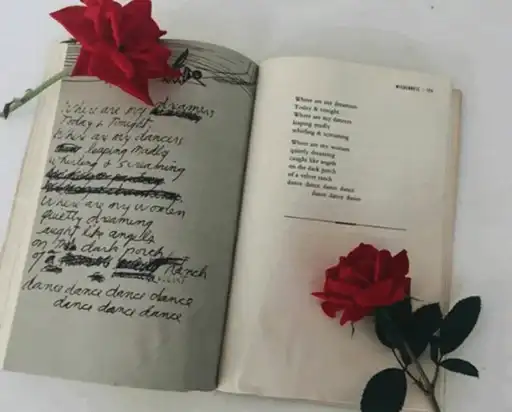 Where are my dreamers
Today & tonight
Where are my dancers
leaping madly
whirling & screaming
Where are my women
quietly dreaming
caught like angels
on the dark porch
of a ranch
dance dance dance dance
dance dance dance
WILDERNESS
Where are my dreamers
Today & tonight
Where are my dancers
leaping madly
whirling & screaming
Where are my women
quietly dreaming
caught like angels
on the dark porch
of a velvet ranch
dance dance dance dance
dance dance dance